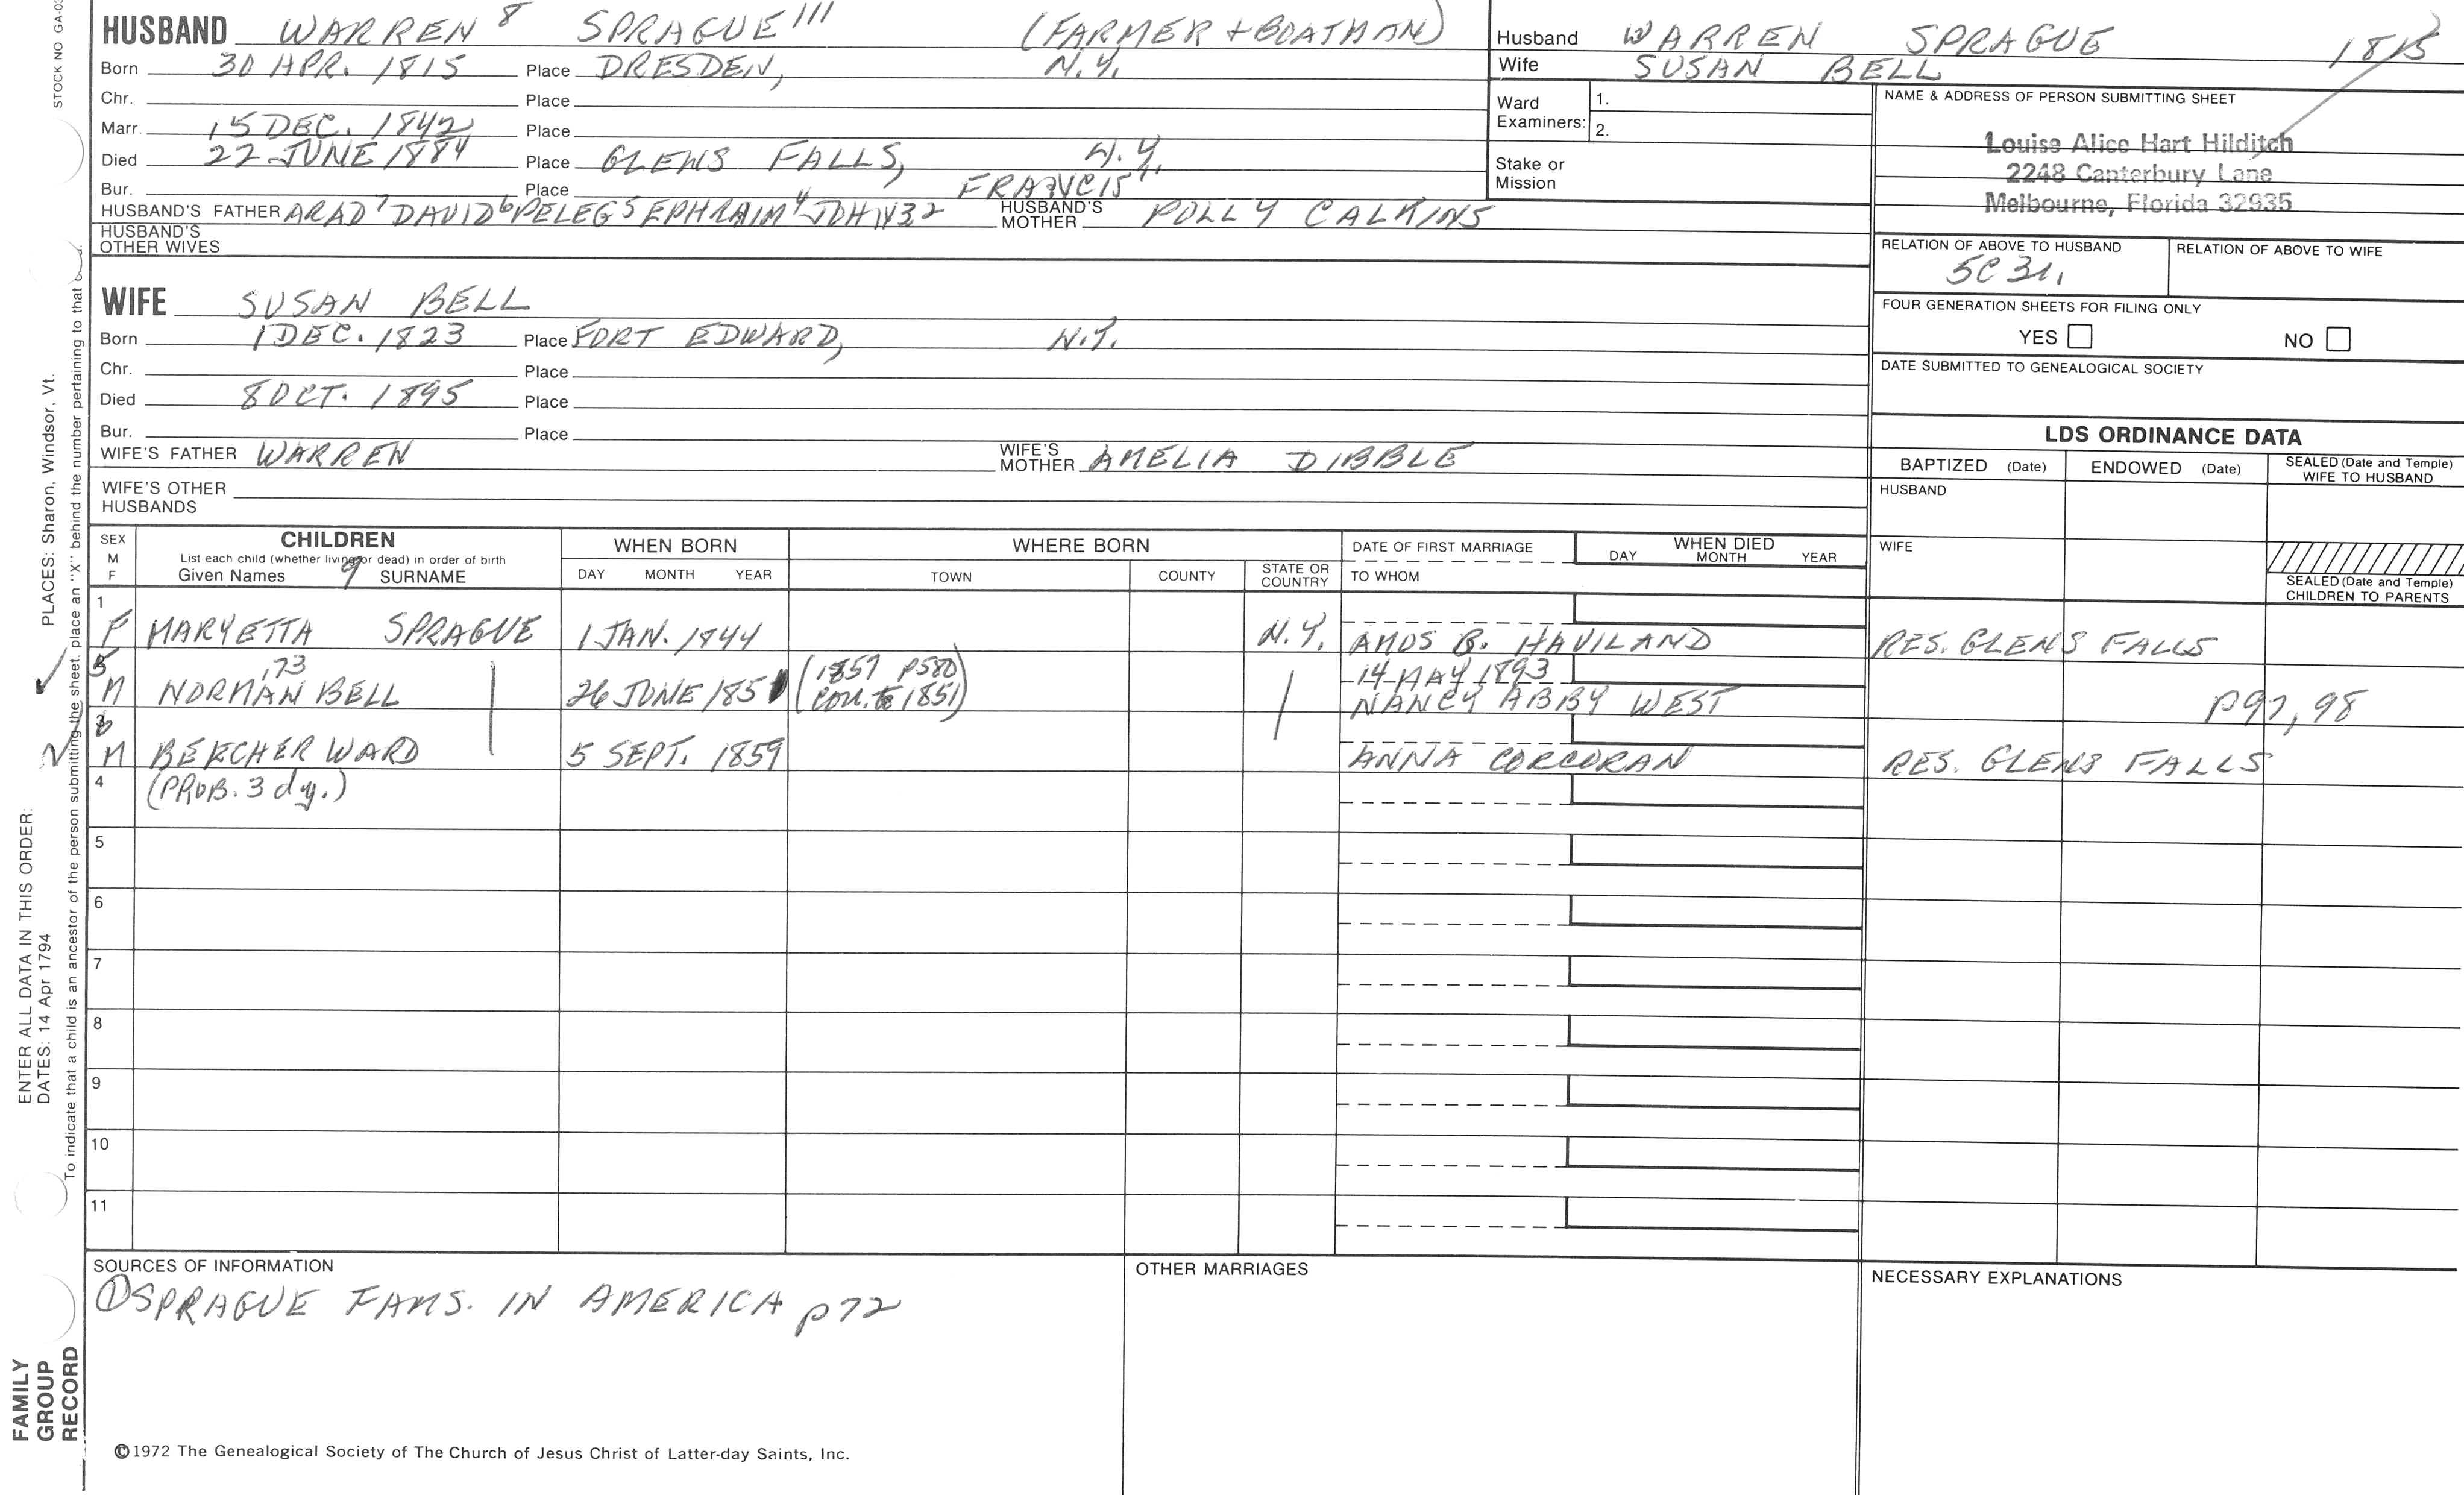 STOCK NO GA-03
HUSBAND WARREN 8 SPRAGUE 111 (FARMER + BOATMAN)
Born 30 APR. 1815 Place DRESDEN, N.Y.
Chr. Place
Marr. 15 DEC. 1842 Place
Died 22 JUNE 1884 Place GLENS FALLS, N.Y.
Bur. Place
HUSBAND'S FATHER ARAD 7 DAVID 6 PELEG 5 EPHRAIM 4 JOHN 32 FRANCIS 1 HUSBAND'S MOTHER POLLY CALKINS
HUSBAND'S OTHER WIVES
WIFE SUSAN BELL
Born 1 DEC. 1823 Place FORT EDWARD, N.Y.
Chr. Place
Died 8 OCT. 1895 Place
Bur. Place
WIFE'S FATHER WARREN WIFE'S MOTHER AMELIA DIBBLE
WIFE'S OTHER HUSBANDS
Husband WARREN SPRAGUE 1815
Wife SUSAN BELL
Ward Examiners: 1.
2.
Stake or Mission
NAME & ADDRESS OF PERSON SUBMITTING SHEET
Louise Alice Hart Hilditch
2248 Canterbury Lane
Melbourne, Florida 32935
RELATION OF ABOVE TO HUSBAND RELATION OF ABOVE TO WIFE
5C 3
FOUR GENERATION SHEETS FOR FILING ONLY
YES NO
DATE SUBMITTED TO GENEALOGICAL SOCIETY
LDS ORDINANCE DATA
BAPTIZED (Date) ENDOWED (Date) SEALED (Date and Temple) WIFE TO HUSBAND
HUSBAND
WIFE
SEALED (Date and Temple) CHILDREN TO PARENTS
SEX M F
CHILDREN
List each child (whether living or dead) in order of birth
Given Names 9 SURNAME
WHEN BORN
DAY MONTH YEAR
WHERE BORN
TOWN COUNTY STATE OR COUNTRY
DATE OF FIRST MARRIAGE
TO WHOM
WHEN DIED
DAY MONTH YEAR
1
F MARYETTA SPRAGUE 1 JAN. 1844 N.Y. AMOS B. HAVILAND RES. GLENS FALLS
173 (1857 P580) 14 MAY 1893
M NORMAN BELL 26 JUNE 1851 1851) NANCY ABBY WEST P97, 98
3
M BEECHER WARD 5 SEPT. 1859 ANNA CORCORAN RES. GLENS FALLS
4 (PROB. 3 dy.)
5
6
7
8
9
10
11
SOURCES OF INFORMATION
① SPRAGUE FAMS. IN AMERICA p72
OTHER MARRIAGES
NECESSARY EXPLANATIONS
©1972 The Genealogical Society of The Church of Jesus Christ of Latter-day Saints, Inc.
FAMILY GROUP RECORD
ENTER ALL DATA IN THIS ORDER:
DATES: 14 Apr 1794
PLACES: Sharon, Windsor, Vt.
To indicate that a child is an ancestor of the person submitting the sheet, place an "X" behind the number pertaining to that